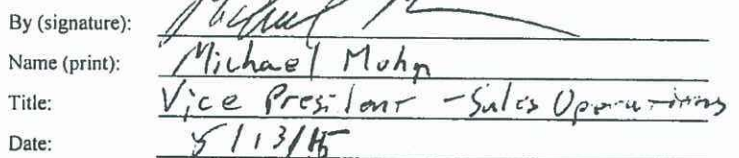 By (signature):
Name (print): Michael Mohn
Title: Vice President - Sales Operations
Date: 5/13/15